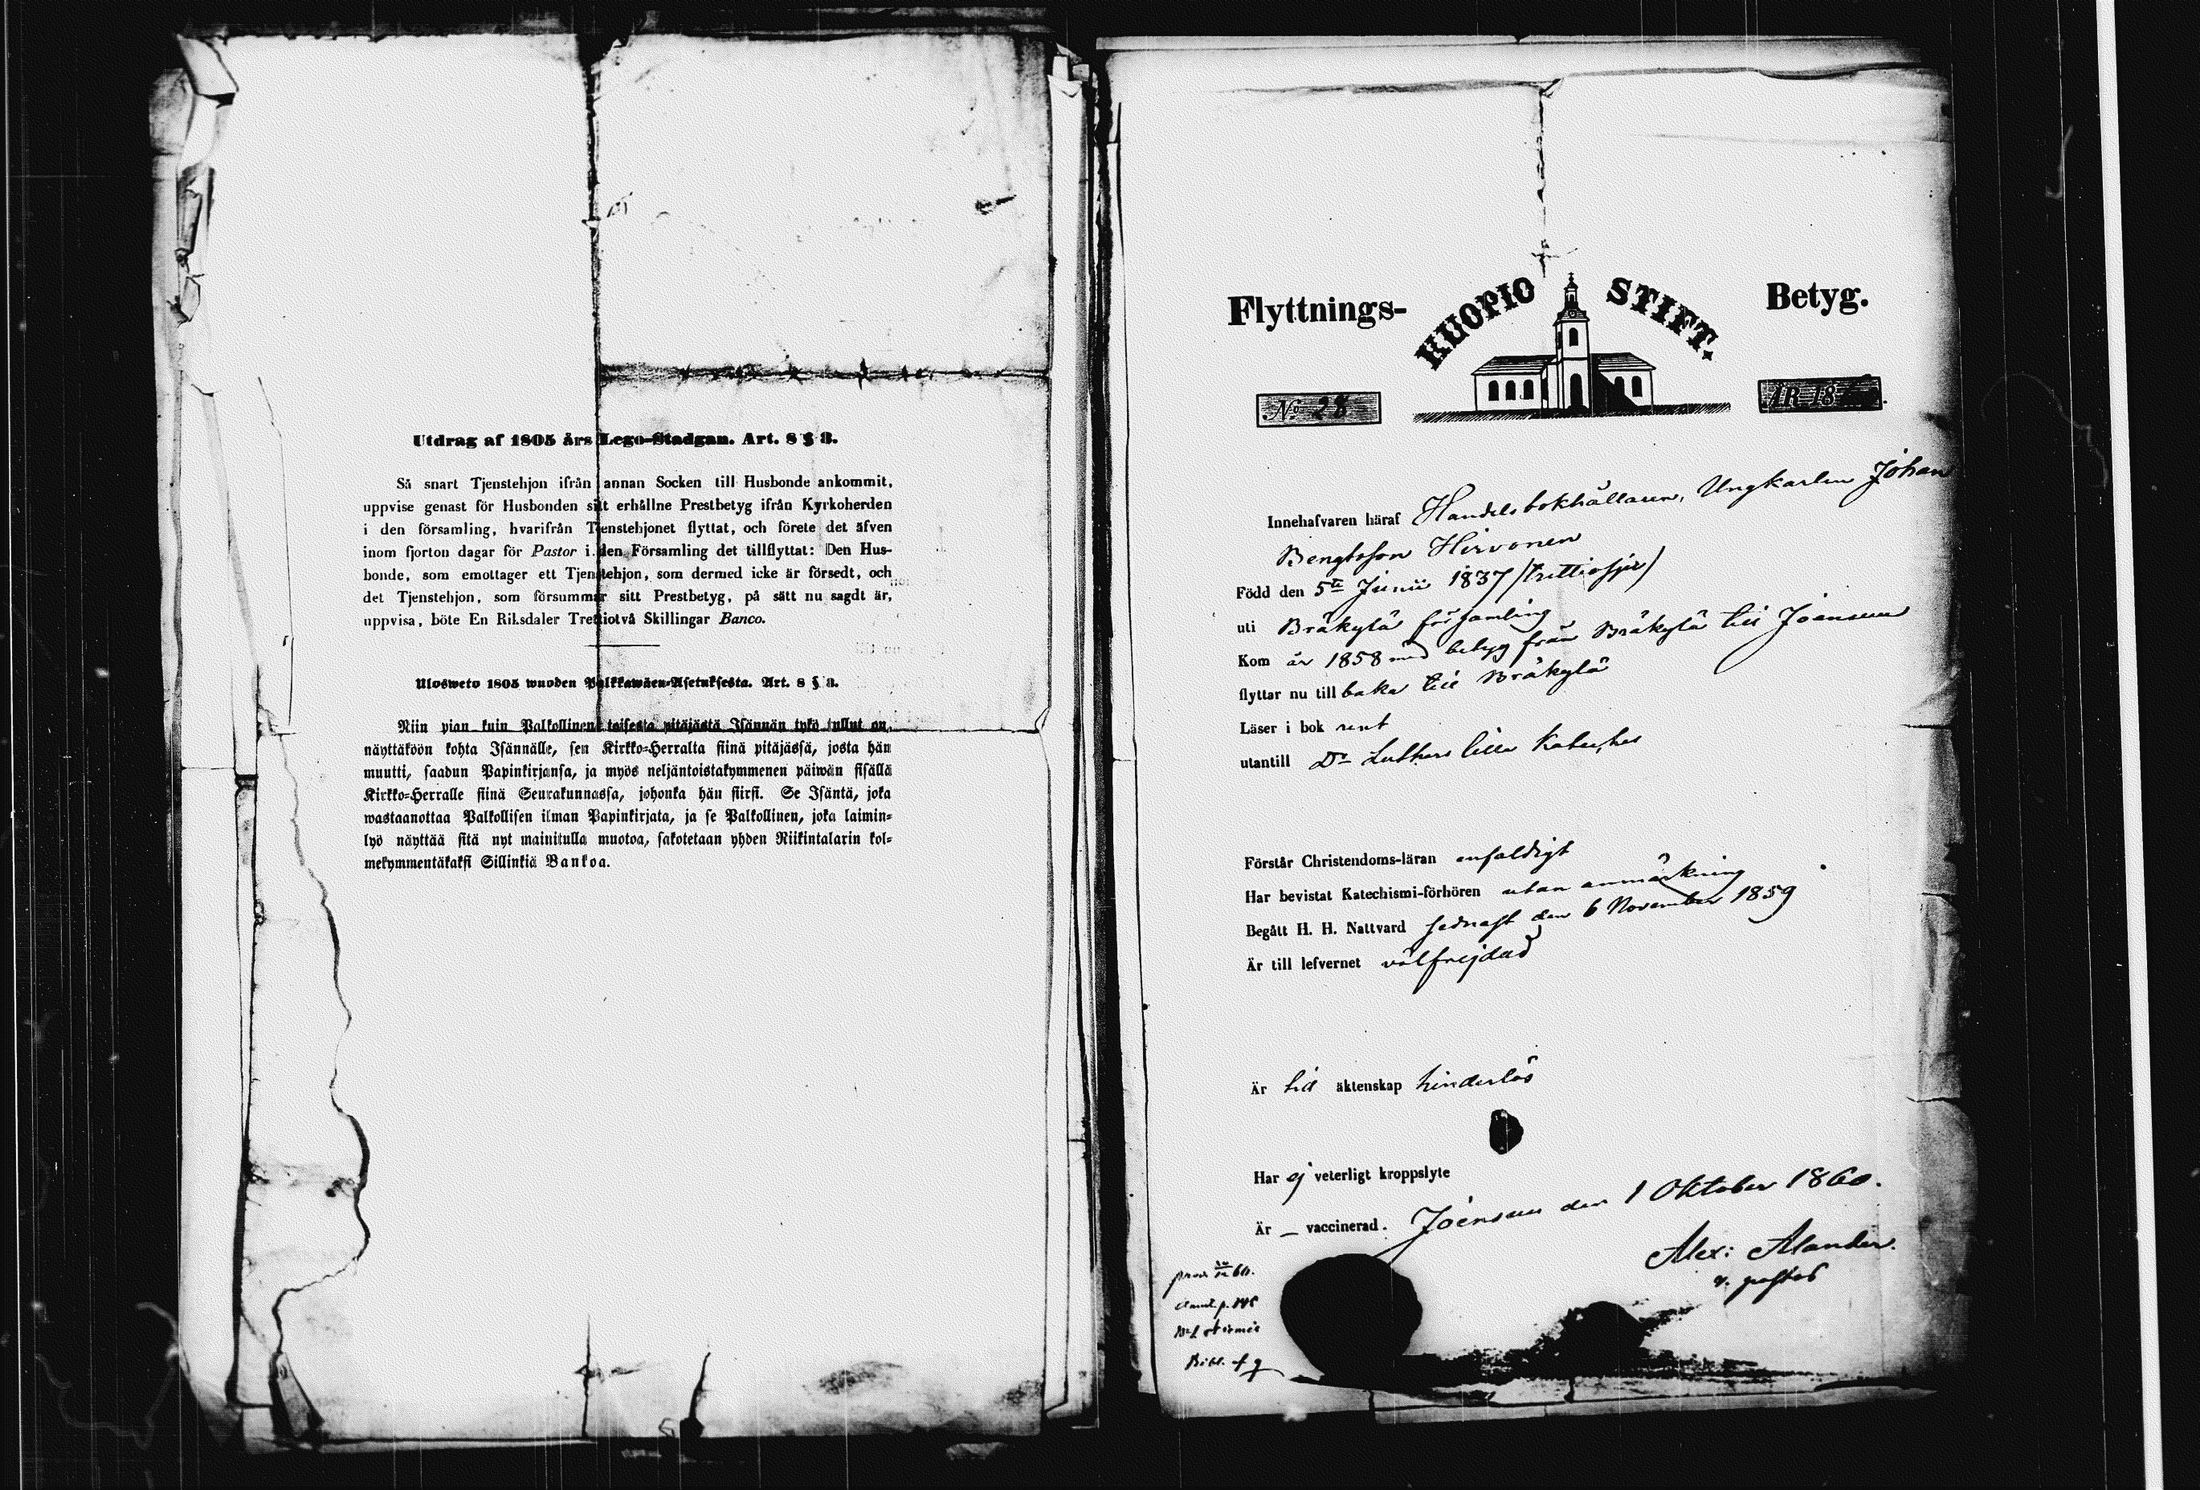 Utdrag af 1805 års Lego-Stadgan. Art. 8 § 3.
Så snart Tjenstehjon ifrån annan Socken till Husbonde ankommit,
uppvise genast för Husbonden sitt erhållne Prestbetyg ifrån Kyrkoherden
i den församling, hvarifrån Tjenstehjonet flyttat, och förete det äfven
inom fjorton dagar för Pastor i den Församling det tillflyttat: Den Hus-
bonde, som emottager ett Tjenstehjon, som dermed icke är försedt, och
det Tjenstehjon, som försummar sitt Prestbetyg, på sätt nu sagdt är,
uppvisa, böte En Riksdaler Trettiotvå Skillingar Banco.
Ulosweto 1805 wuoden Palkkawäen-Asetuksesta. Art. 8 § 3.
Niin pian kuin Palkollinen toisesta pitäjästä Isännän tykö tullut on,
näyttäköön kohta Isännälle, sen Kirkko-Herralta siinä pitäjässä, josta hän
muutti, saadun Papinkirjansa, ja myös neljäntoistakymmenen päiwän sisällä
Kirkko-Herralle siinä Seurakunnassa, johonka hän siirsi. Se Isäntä, joka
wastaanottaa Palkollisen ilman Papinkirjata, ja se Palkollinen, joka laimin-
lyö näyttää sitä nyt mainitulla muotoa, sakotetaan yhden Riikintalarin kol-
mekymmentäkaksi Sillinkiä Bankoa.
Flyttnings- KUOPIO STIFT. Betyg.
No 28 ÅR 18
Innehafvaren häraf Handelsbokhållaren, Ungkarlen Johan
Bengtsson Hirvonen
Född den 5te Junii 1837 (trettiosju)
uti Bräkylä församling
Kom år 1858 med betyg från Bräkylä till Joensuu
flyttar nu till baka till Bräkylä
Läser i bok rent
utantill Dr Luthers lilla Kateches
Förstår Christendoms-läran enfaldigt
Har bevistat Katechismi-förhören utan anmärkning
Begått H. H. Nattvard sednast den 6 November 1859
Är till lefvernet välfrejdad
Är till äktenskap hinderlös
Har ej veterligt kroppslyte
Är — vaccinerad. Joensuu den 1 Oktober 1860.
Alex: Alander.
v. pastor